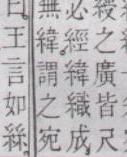 綬之廣皆尺
必經緯織成
無緯謂之宛
曰王言如絲